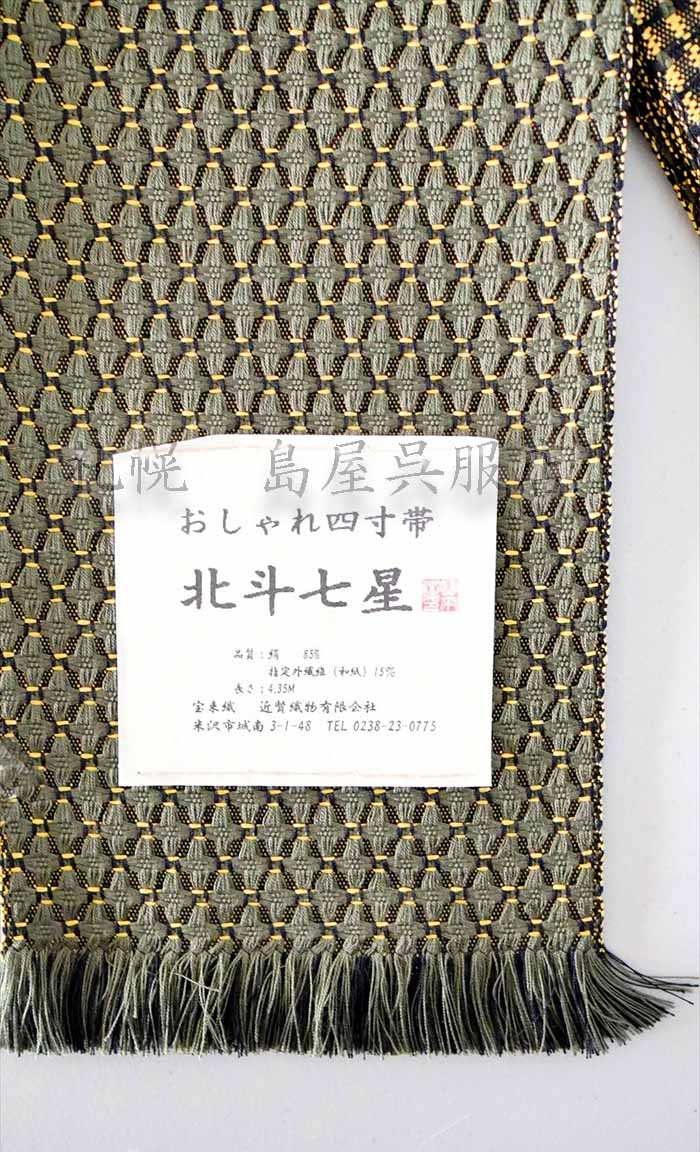 札幌　島屋呉服店
おしゃれ四寸帯
北斗七星
品質：絹　85%
指定外繊維（和紙）15%
長さ：4.35M
宝来織　近賢織物有限会社
米沢市城南3-1-48　TEL 0238-23-0775